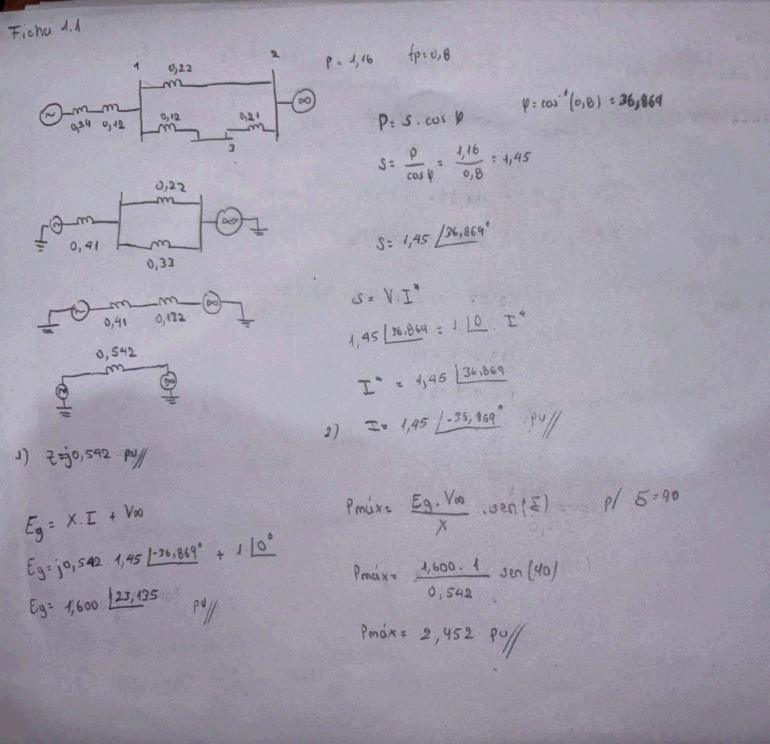 Ficha 1.1
1
2
0,22
0,24 0,12
0,12
0,21
3
∞
P = 1,16 fp=0,8
P= S. cos φ
φ= cos⁻¹(0,8) = 36,869
S= P/cosφ = 1,16/0,8 = 1,45
0,22
0,41
0,33
∞
S= 1,45 ∠36,869°
0,41 0,132
∞
S= V.I*
1,45 ∠36,869 = 1 ∠0 . I*
0,542
∞
I* = 1,45 ∠36,869
2) I= 1,45 ∠-36,869° pu//
1) Z=j0,542 pu//
Eg = X.I + V∞
Eg= j0,542 . 1,45 ∠-36,869° + 1 ∠0°
Eg= 1,600 ∠23,135 pu//
Pmáx= Eg. V∞/X .sen(δ) p/ δ=90
Pmáx= 1,600. 1/0,542 sen(90)
Pmáx= 2,452 pu//